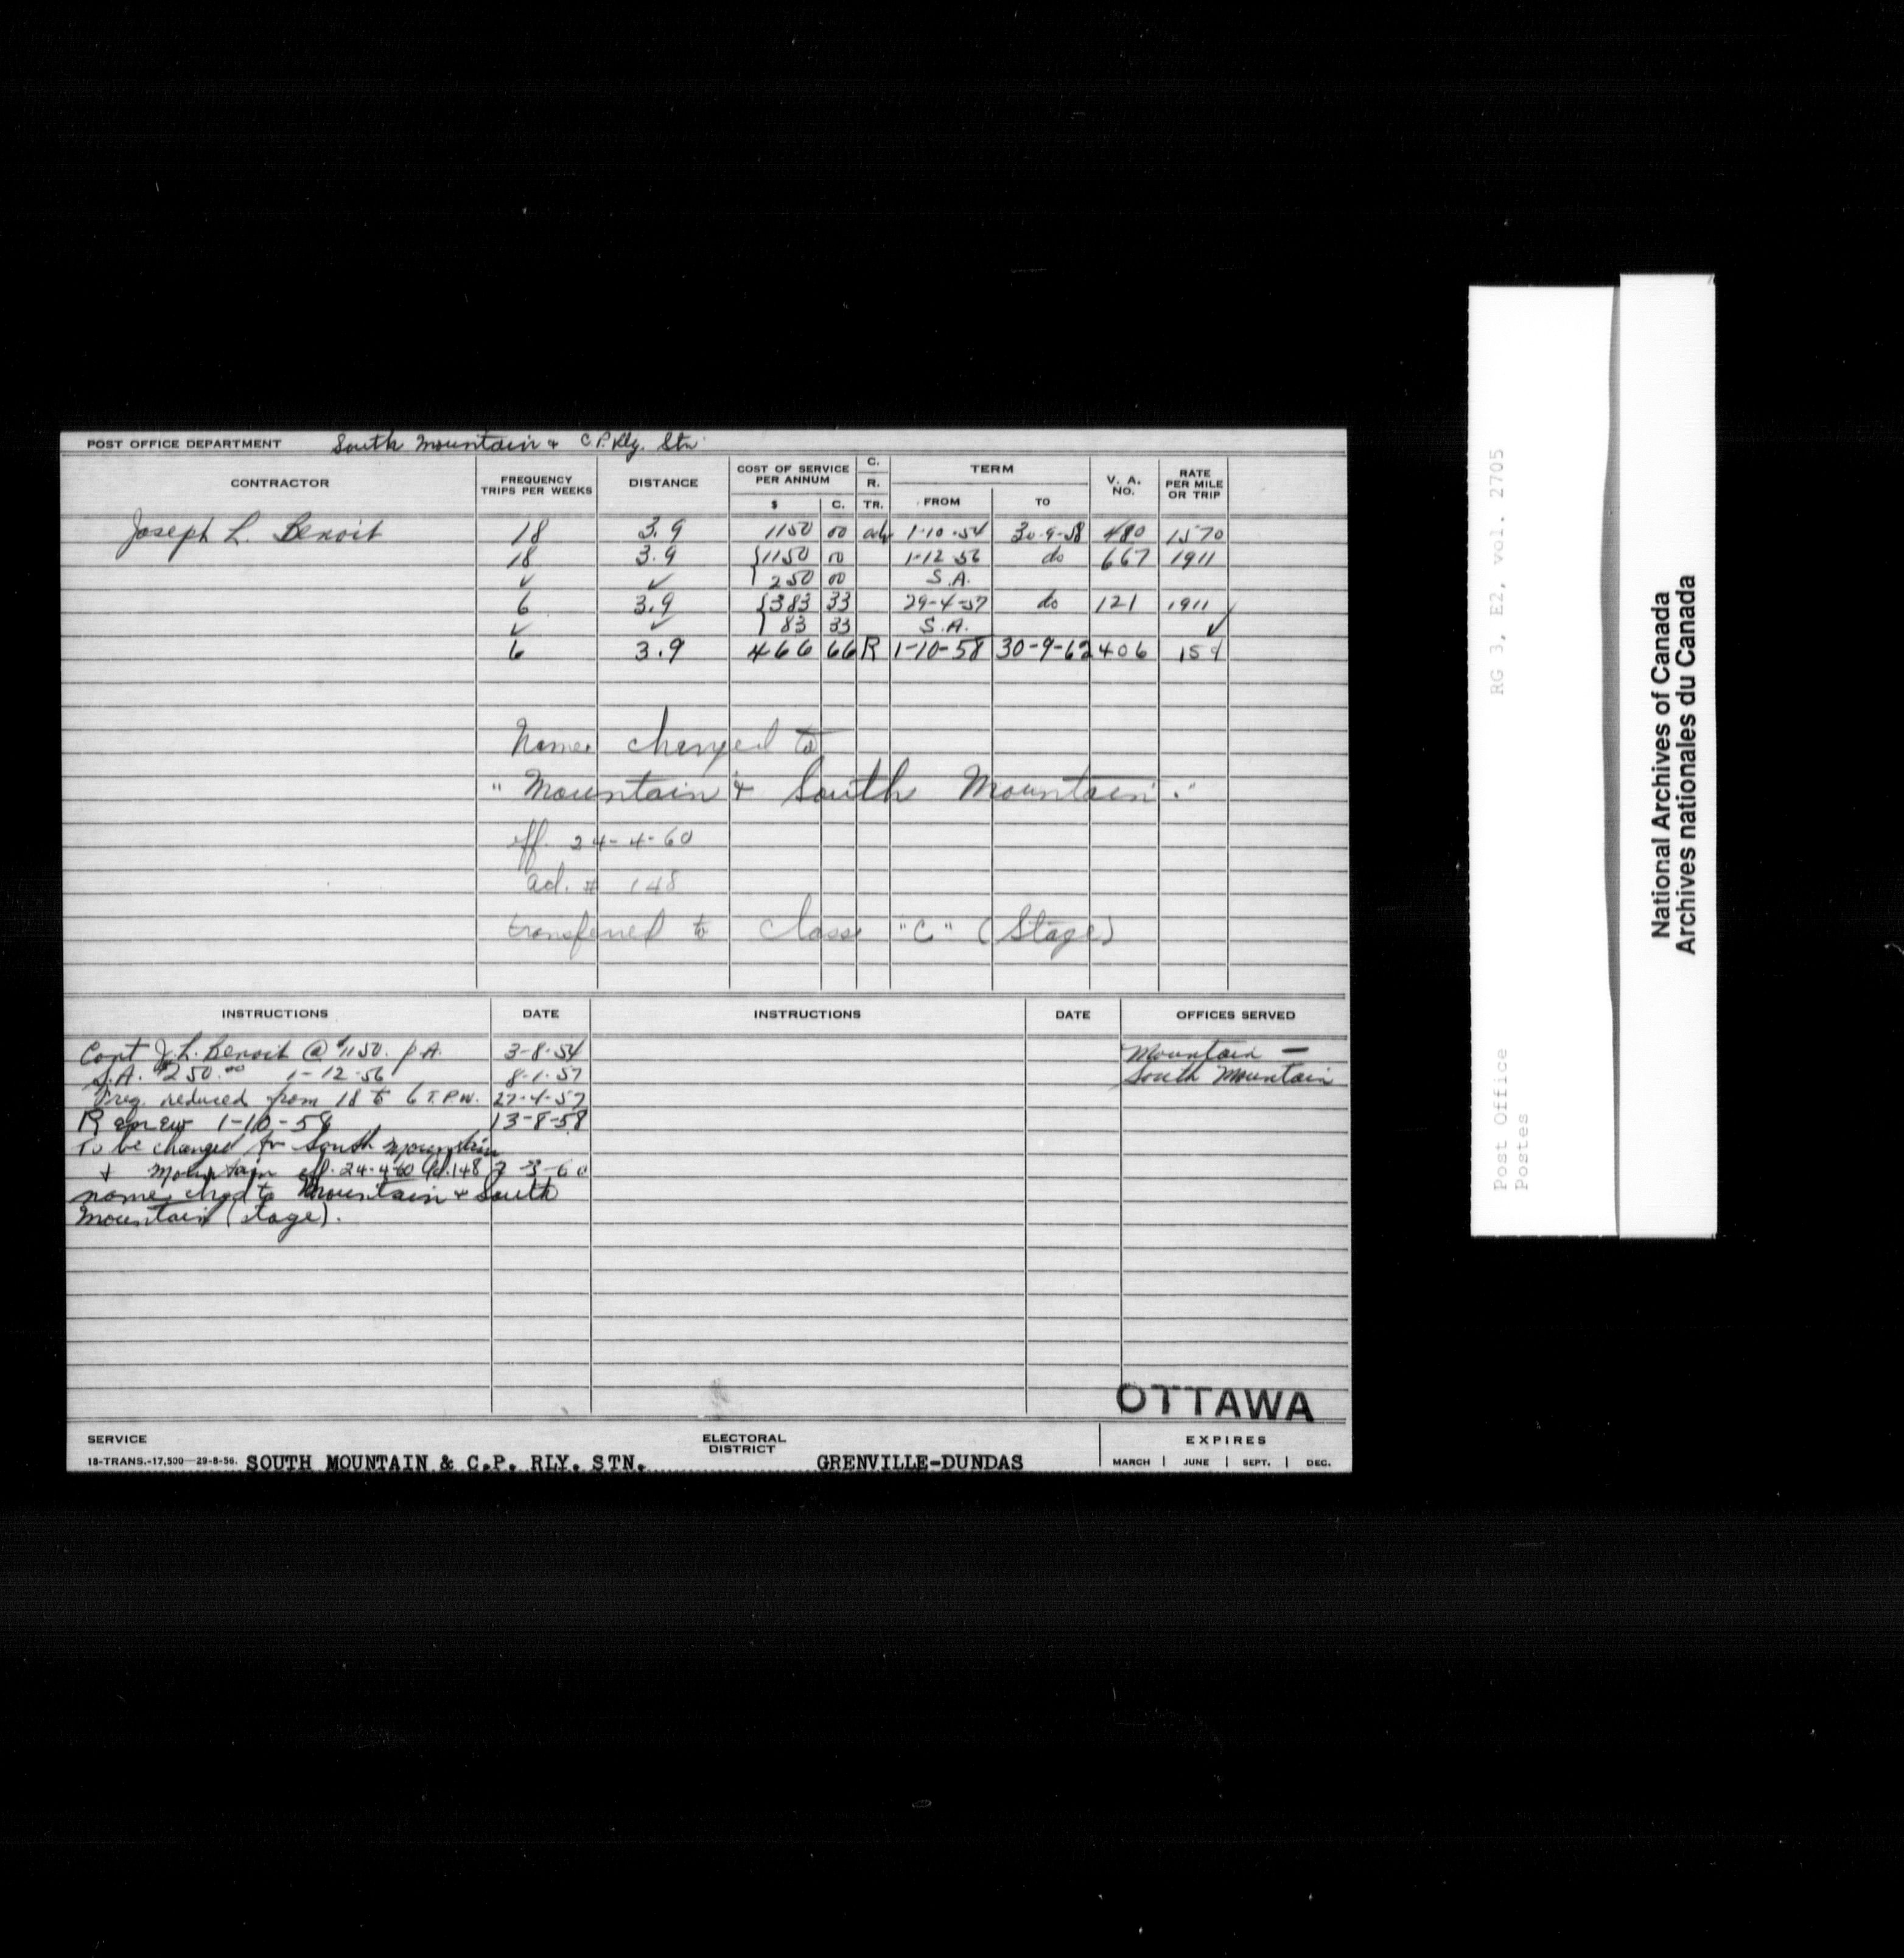 POST OFFICE DEPARTMENT South Mountain & C.P. Rly. Stn.
CONTRACTOR FREQUENCY TRIPS PER WEEKS DISTANCE COST OF SERVICE PER ANNUM $ C. C. R. TR. TERM FROM TO V. A. NO. RATE PER MILE OR TRIP
Joseph L. Benoit 18 3.9 1150 00 adv 1-10-54 30-9-58 480 1570
18 3.9 {1150 00 1-12-56 do 667 1911
✓ ✓ 250 00 S.A.
6 3.9 {383 33 29-4-57 do 121 1911
✓ ✓ 83 33 S.A. ✓
6 3.9 466 66 R 1-10-58 30-9-62 406
Name changed to
"Mountain & South Mountain."
eff. 24-4-60
ad. # 148
transferred to Class "C" (Stage)
INSTRUCTIONS DATE INSTRUCTIONS DATE OFFICES SERVED
Cont J.L. Benoit @ $1150. p.A. 3-8-54 Mountain —
S.A. $250.00 1-12-56 8-1-57 South Mountain
Freq. reduced from 18 to 6 T.P.W. 27-4-57
Renew 1-10-58 13-8-58
To be changed to South Mountain
+ Mountain eff. 24-4-60 Ad. 148 7-3-60
name chgd to Mountain & South
Mountain (stage).
OTTAWA
SERVICE ELECTORAL DISTRICT EXPIRES
18-TRANS.-17,500—29-8-56. SOUTH MOUNTAIN & C.P. RLY. STN. GRENVILLE-DUNDAS MARCH | JUNE | SEPT. | DEC.
RG 3, E2, vol. 2705
Post Office
Postes
National Archives of Canada
Archives nationales du Canada